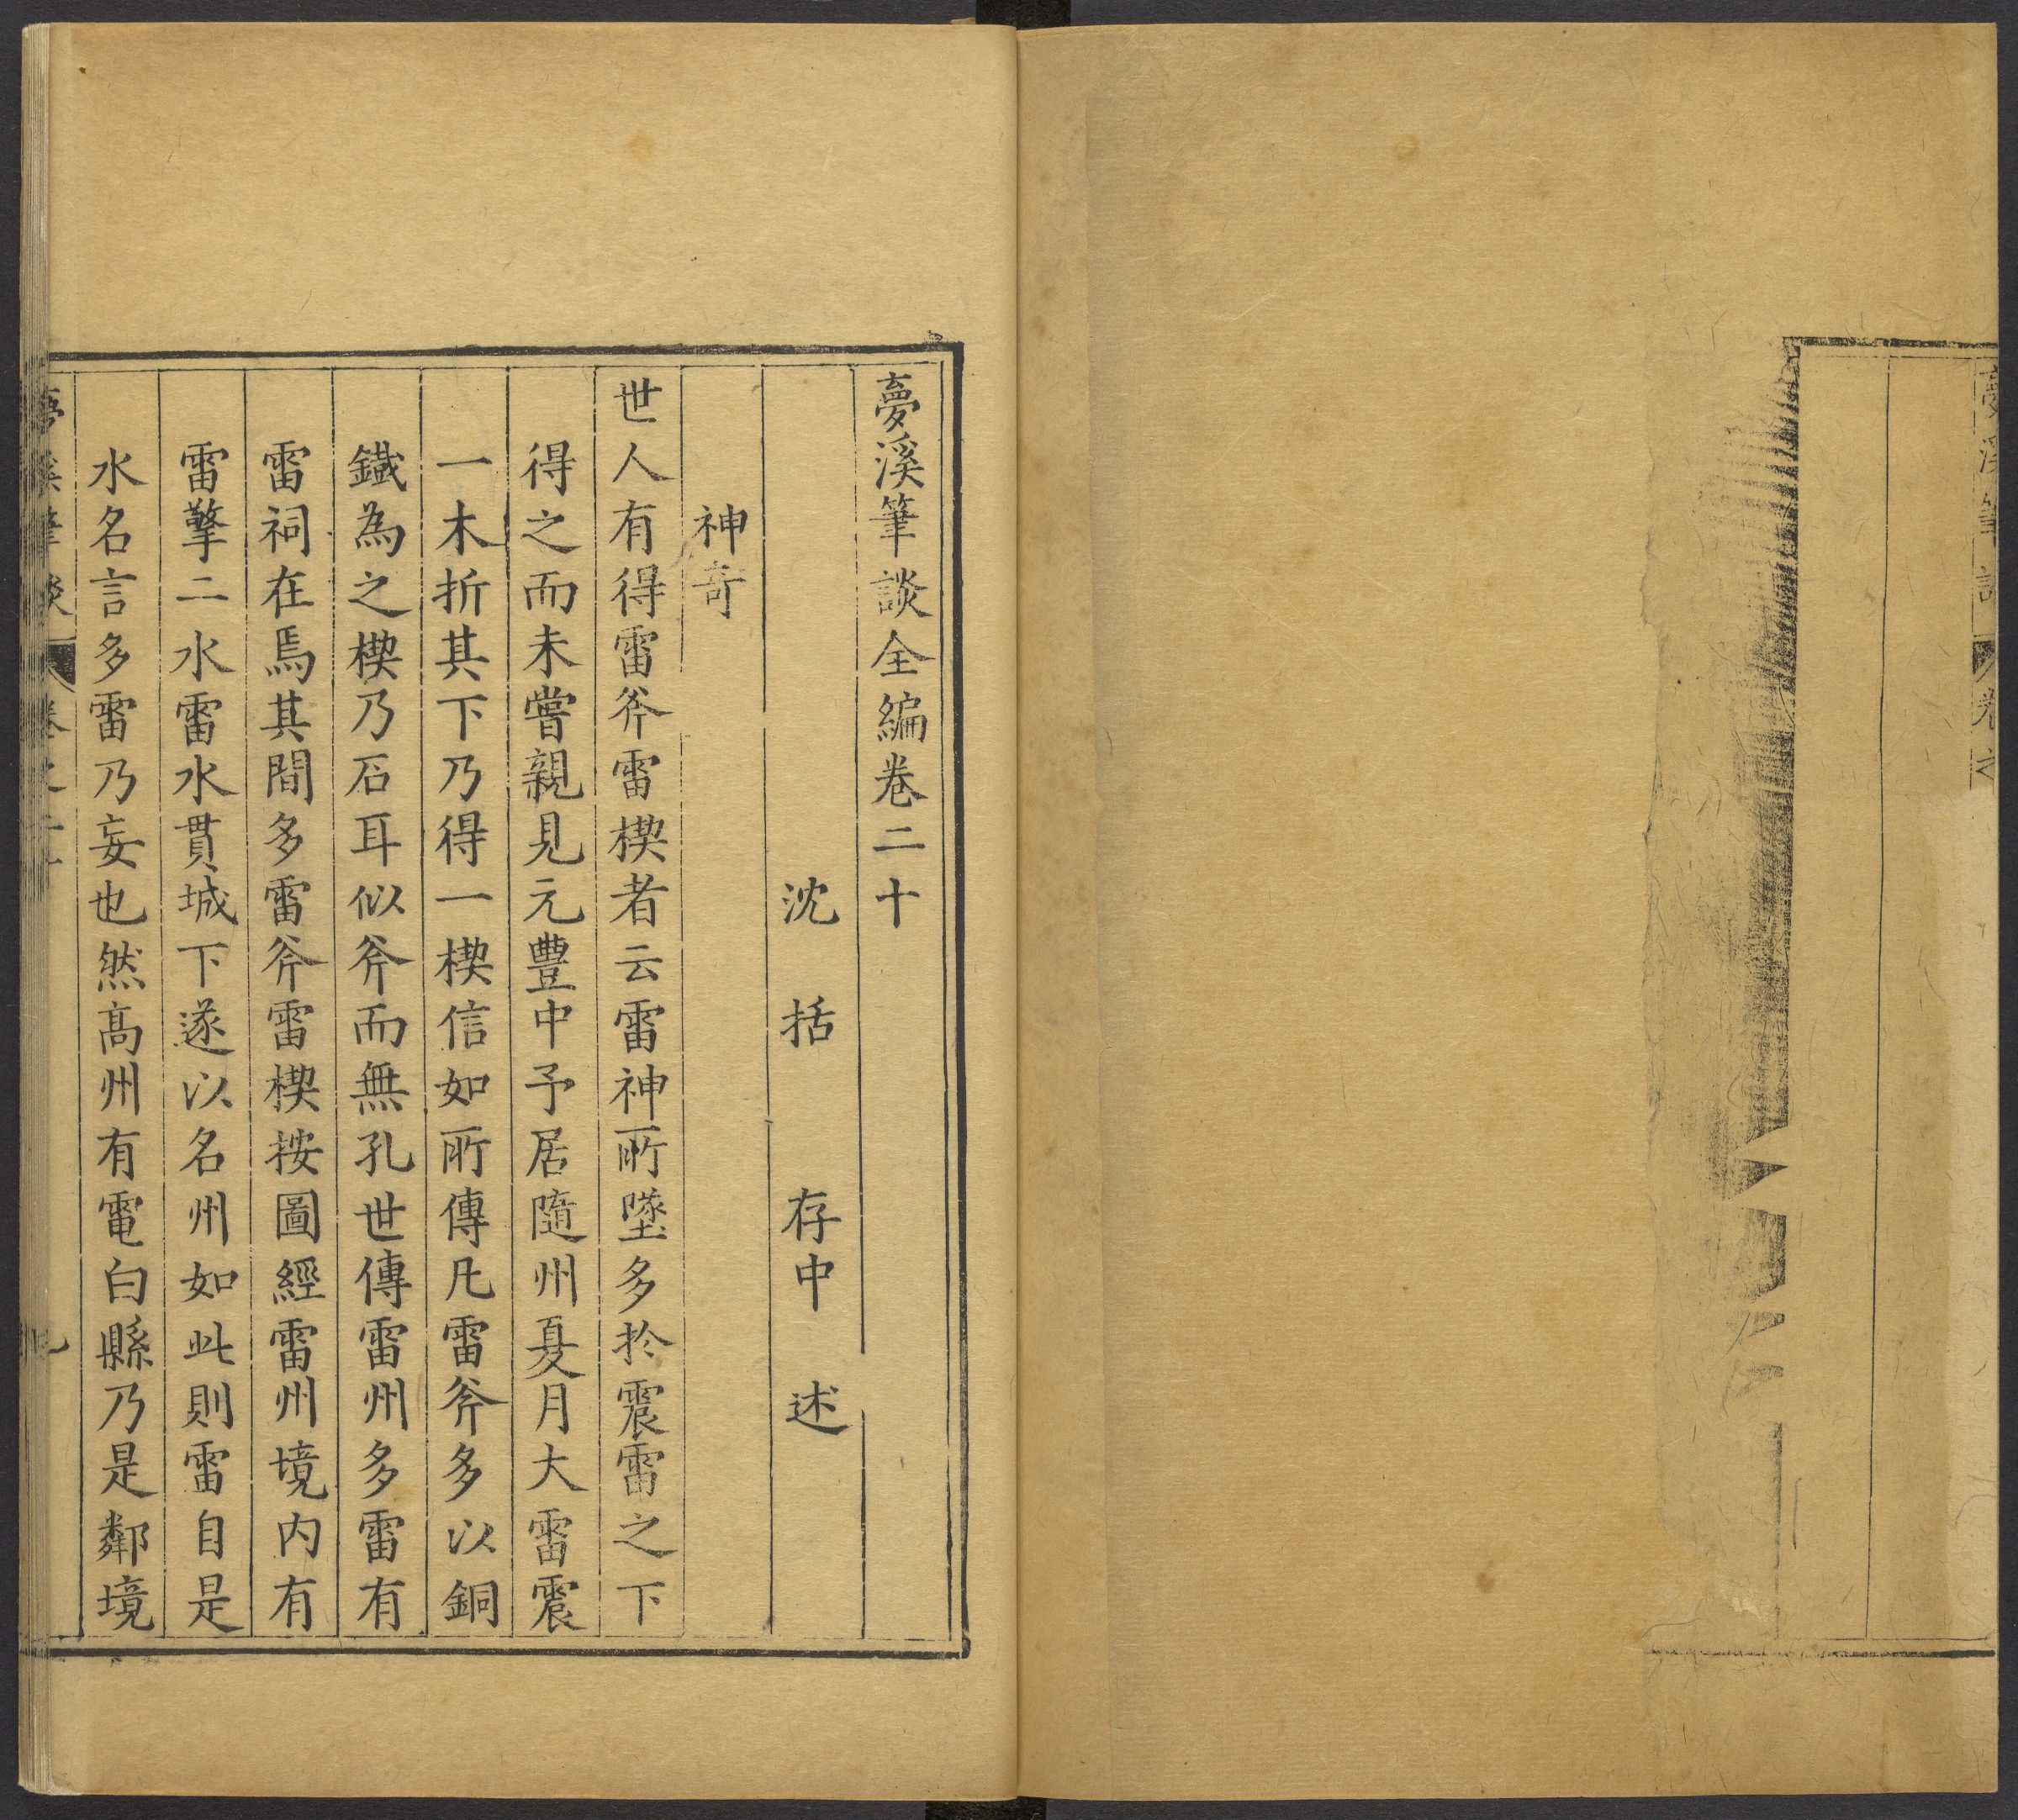 夢溪筆
卷之
夢溪筆談全編卷二十
沈括　存中　述
神奇
世人有得雷斧雷楔者云雷神所墜多於震雷之下
得之而未嘗親見元豐中予居隨州夏月大雷震
一木折其下乃得一楔信如所傳凡雷斧多以銅
鐵為之楔乃石耳似斧而無孔世傳雷州多雷有
雷祠在焉其間多雷斧雷楔按圖經雷州境內有
雷擎二水雷水貫城下遂以名州如此則雷自是
水名言多雷乃妄也然高州有電白縣乃是鄰境
夢溪筆談　卷之二十